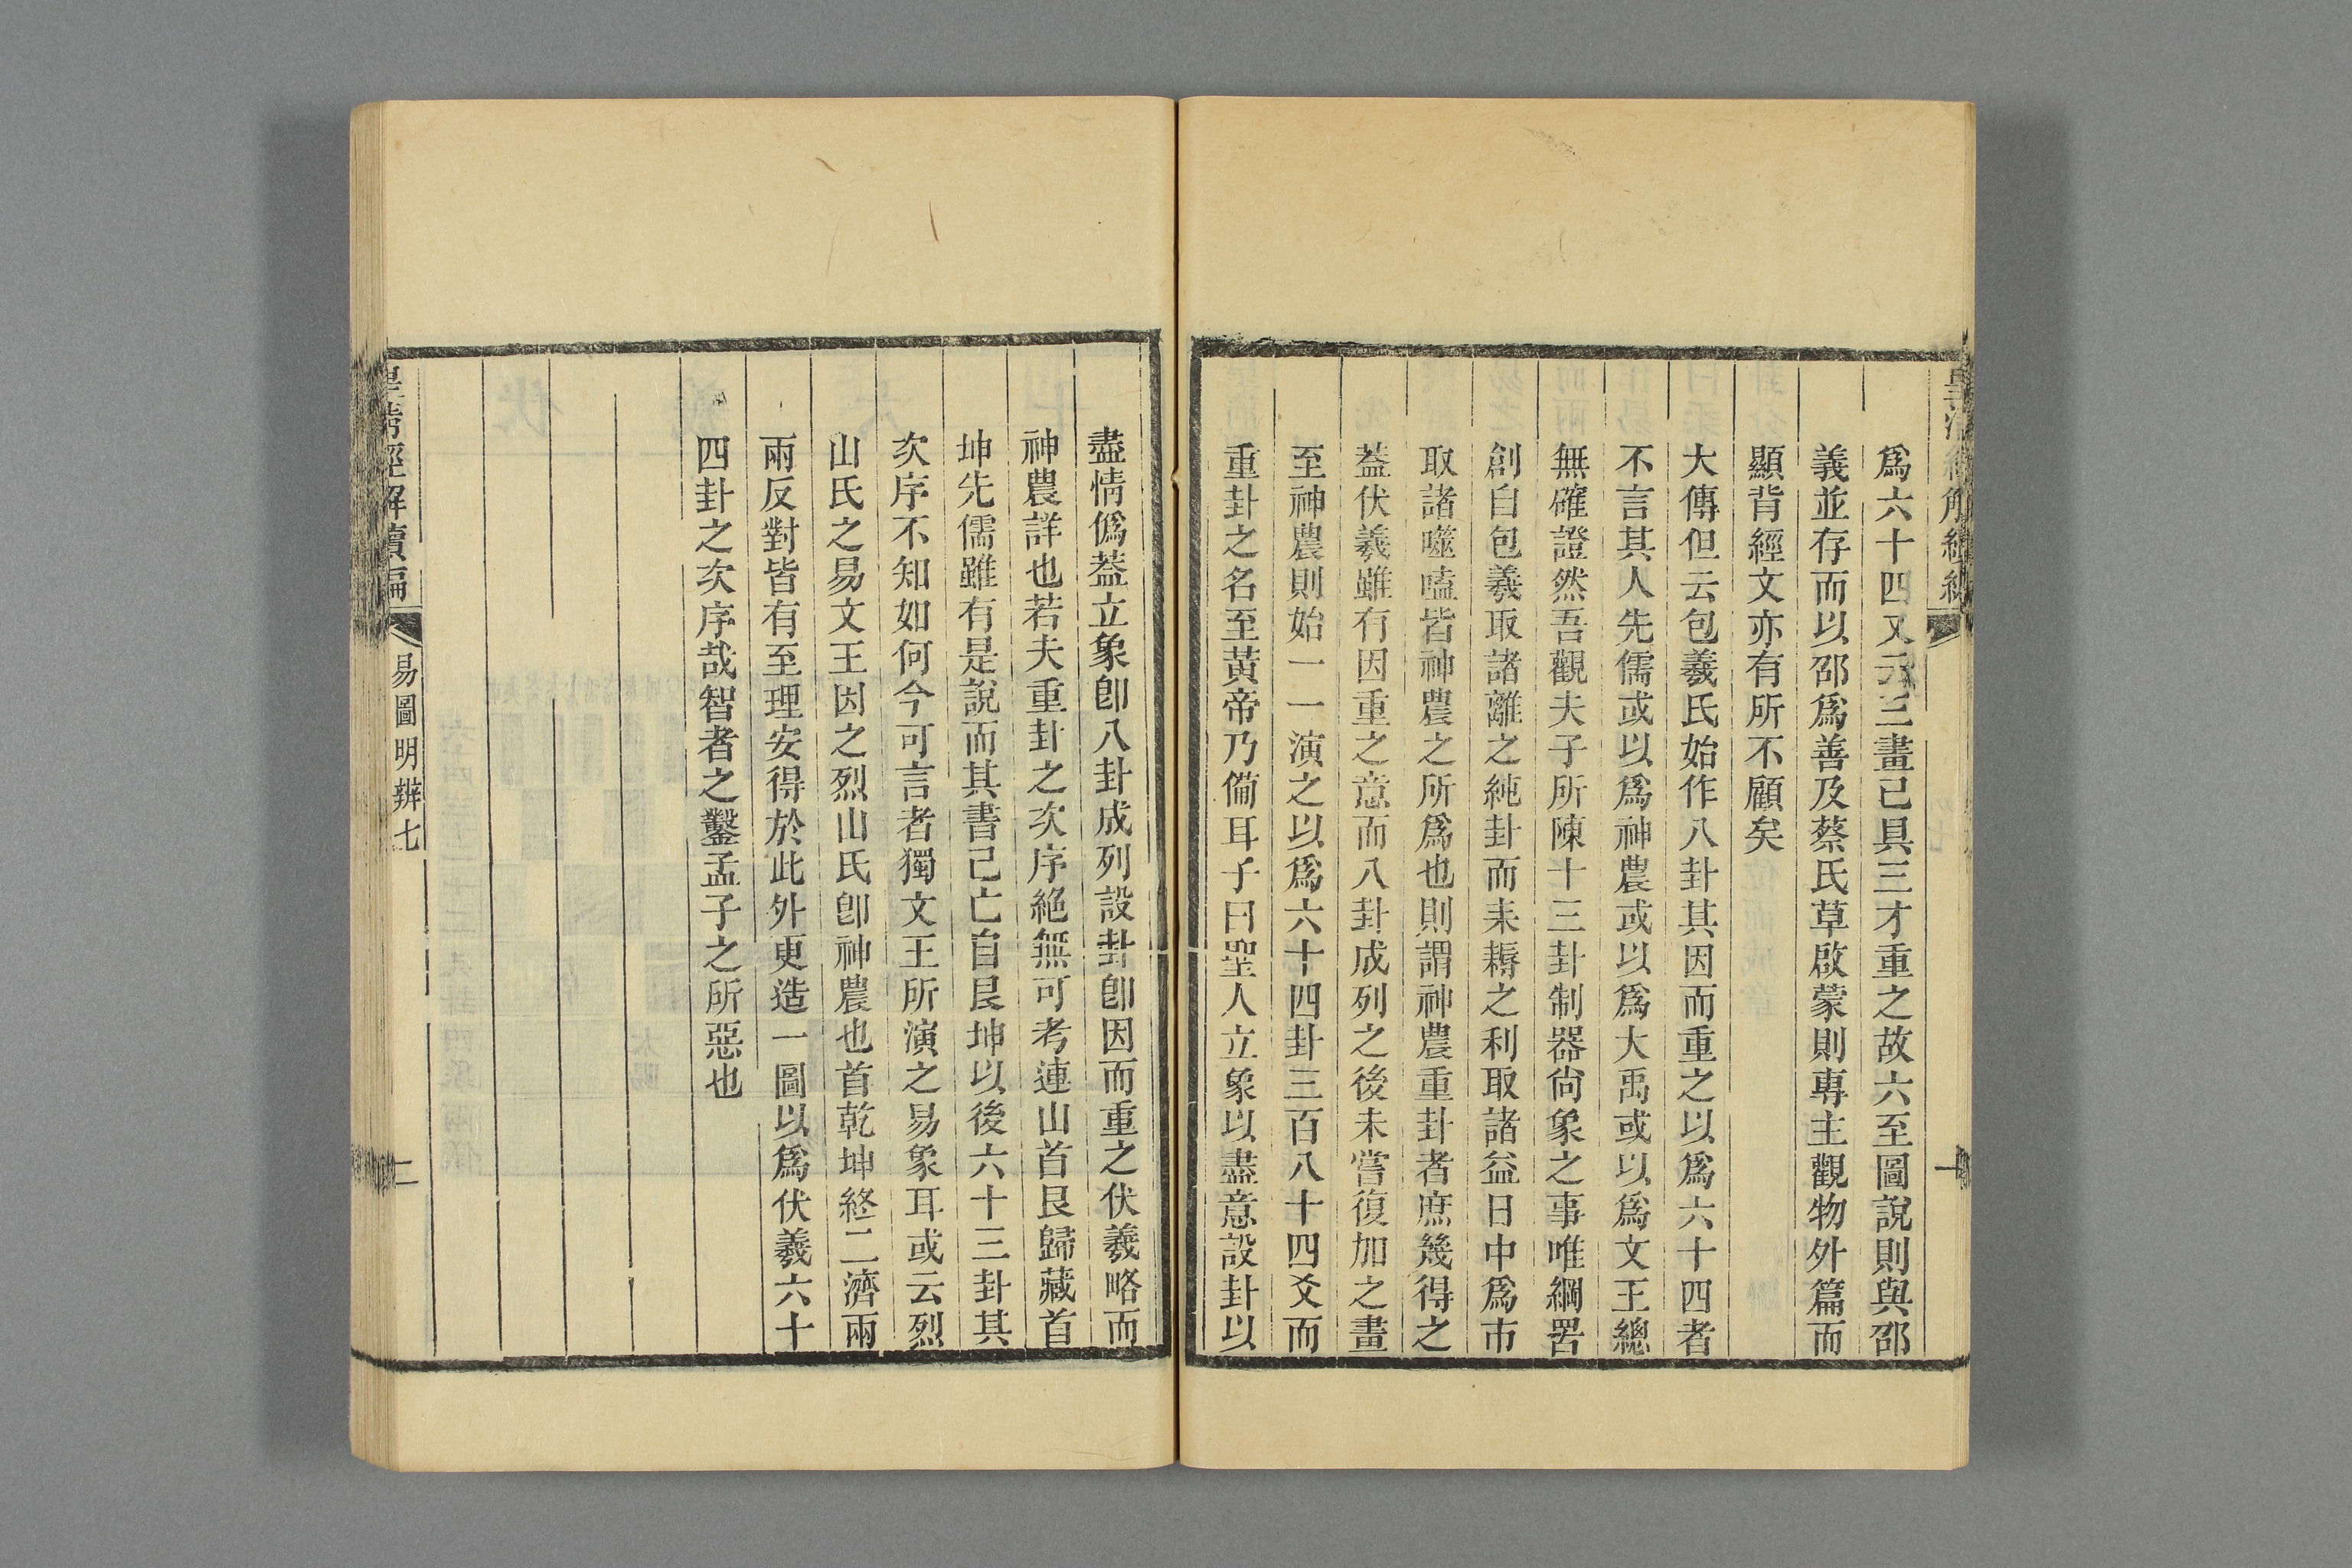 爲六十四又云三畫已具三才重之故六至圖說則與邵
義並存而以邵爲善及蔡氏草啟蒙則專主觀物外篇而
顯背經文亦有所不顧矣
大傳但云包羲氏始作八卦其因而重之以爲六十四者
不言其人先儒或以爲神農或以爲大禹或以爲文王總
無確證然吾觀夫子所陳十三卦制器尙象之事唯綱罟
創自包羲取諸離之純卦而耒耨之利取諸益日中爲市
取諸噬嗑皆神農之所爲也則謂神農重卦者庶幾得之
葢伏羲雖有因重之意而八卦成列之後未嘗復加之畫
至神農則始一一演之以爲六十四卦三百八十四爻而
重卦之名至黃帝乃備耳子曰聖人立象以盡意設卦以
盡情僞葢立象卽八卦成列設卦卽因而重之伏羲略而
神農詳也若夫重卦之次序絕無可考連山首艮歸藏首
坤先儒雖有是說而其書已亡自艮坤以後六十三卦其
次序不知如何今可言者獨文王所演之易象耳或云烈
山氏之易文王因之烈山氏卽神農也首乾坤終二濟兩
兩反對皆有至理安得於此外更造一圖以爲伏羲六十
四卦之次序哉智者之鑿孟子之所惡也
皇清經解續編
易圖明辨七
二